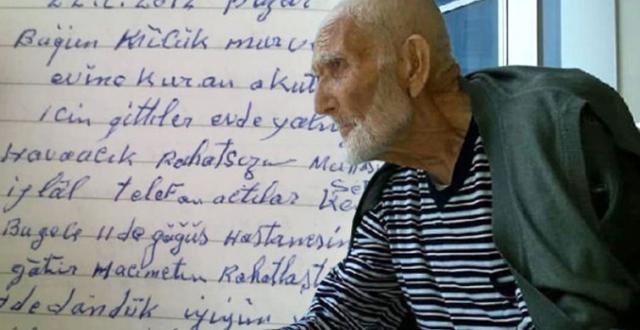 22.2.2012 pazar
Bugün Küçük murv
evine kuran okut
için gittiler evde yaln
Havacık Rahatsızım
işlâl telefon actılar
Bu gece 11 de göğüs Hastanesin
götür Rahatlaşt
de döndük iyiyim